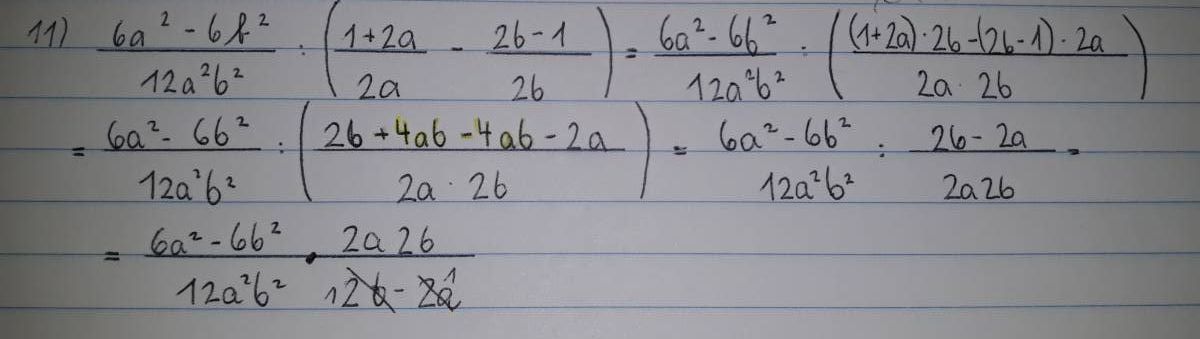 11) (6a² - 6b²)/(12a²b²) : ((1+2a)/(2a) - (2b-1)/(2b)) = (6a² - 6b²)/(12a²b²) : (((1+2a)·2b-(2b-1)·2a)/(2a·2b))
= (6a² - 6b²)/(12a²b²) : ((2b+4ab-4ab-2a)/(2a·2b)) = (6a² - 6b²)/(12a²b²) : (2b-2a)/(2a2b) =
= (6a² - 6b²)/(12a²b²) · (2a2b)/(12b - 2a1)